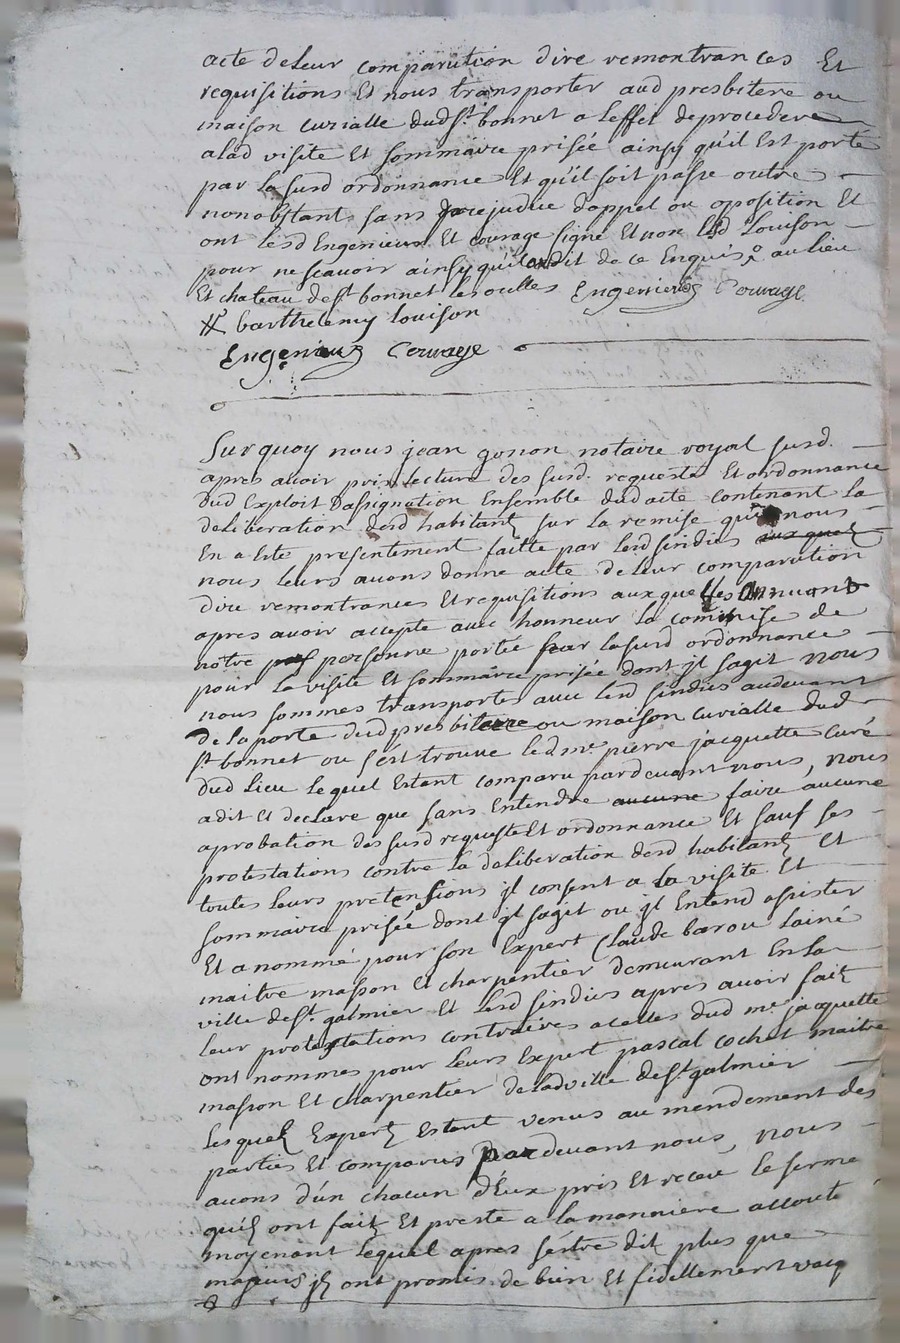 acte deleur comparution dire remontrances Et
requisitions Et nous transporter aud presbitere ou
maison curialle dud st. bonnet a leffet deproceder
alad visite Et sommaire prisée ainsy quil Est porté
par lasusd ordonnance Et qu'il soit passe outre
nonobstant sans prejudice dappel ou oposition Et
ont lesd Engenieux Et courage signe Et non led Louison
pour ne scavoir ainsy quil a dit de ce Enquis au lieu
Et chateau de st. bonnet les oulles Engenieux Courage
barthelemy louison
Engenieux Courage
Surquoy nous jean gonon notaire royal susd.
apres avoir pris lecture des susd. requeste Et ordonnance
dud Exploit Dassignation Ensemble dud acte contenant la
deliberation desd habitants sur la remise qui nous
En a Esté presentement faitte par lesd sindics auxquels
nous leurs avons donne acte deleur comparution
dire remontrances Et requisitions auxquelles annuant
apres avoir accepte avec honneur la commise de
notre personne portée par lasusd ordonnance
pour la visite Et sommaire prisée dont jl sagit nous
nous sommes transportes avec lesd sindics audevant
de la porte dud presbitaire ou maison curialle dud
st. bonnet ou sest trouve led mre pierre jacquette curé
dud lieu lequel Estant comparu pardevant nous, nous
a dit Et declare que sans Entendre aucune faire aucune
aprobation des susd requeste Et ordonnance Et sauf ses
protestations contre la deliberation desd habitants Et
toutes leurs pretensions jl consent a la visite Et
sommaire prisée dont jl sagit ou jl Entend assister
Et a nommé pour son Expert Claude barou lainé
maitre masson Et charpentier demeurant En la
ville de st. galmier Et lesd sindics apres avoir fait
leur protestations contraires acelles dud mre jacquette
ont nommes pour leurs Expert pascal cochet maitre
masson Et charpentier de ladville de st. galmier
lesquels Experts Estant venus au mendement des
parties Et comparus pardevant nous, nous
avons d'un chacun d'Eux pris Et receu le serment
quils ont fait Et preste a la manniere accoutté
moyenant lequel apres sestre dit plus que
majeurs jls ont promis de bien Et fidellement vacq